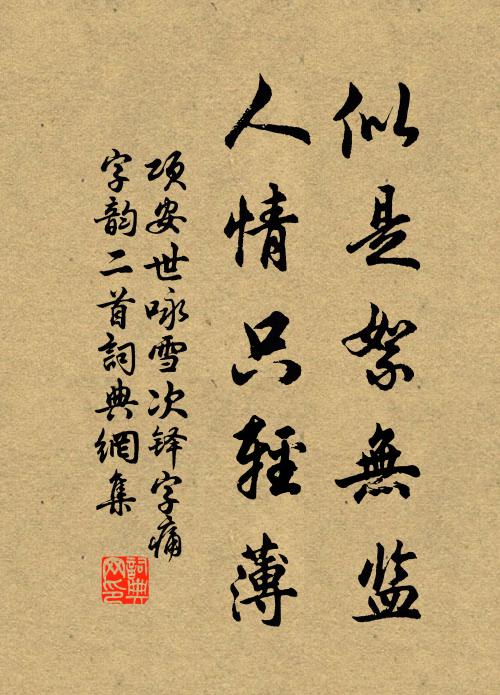 似是絮無监
人情只輕薄
项安世咏雪次铎字痛
字韵二首詞典網集
詞典网印